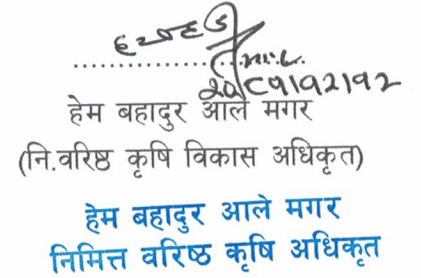 २०८१।१२।१२
हेम बहादुर आले मगर
(नि.वरिष्ठ कृषि विकास अधिकृत)
हेम बहादुर आले मगर
निमित्त वरिष्ठ कृषि अधिकृत